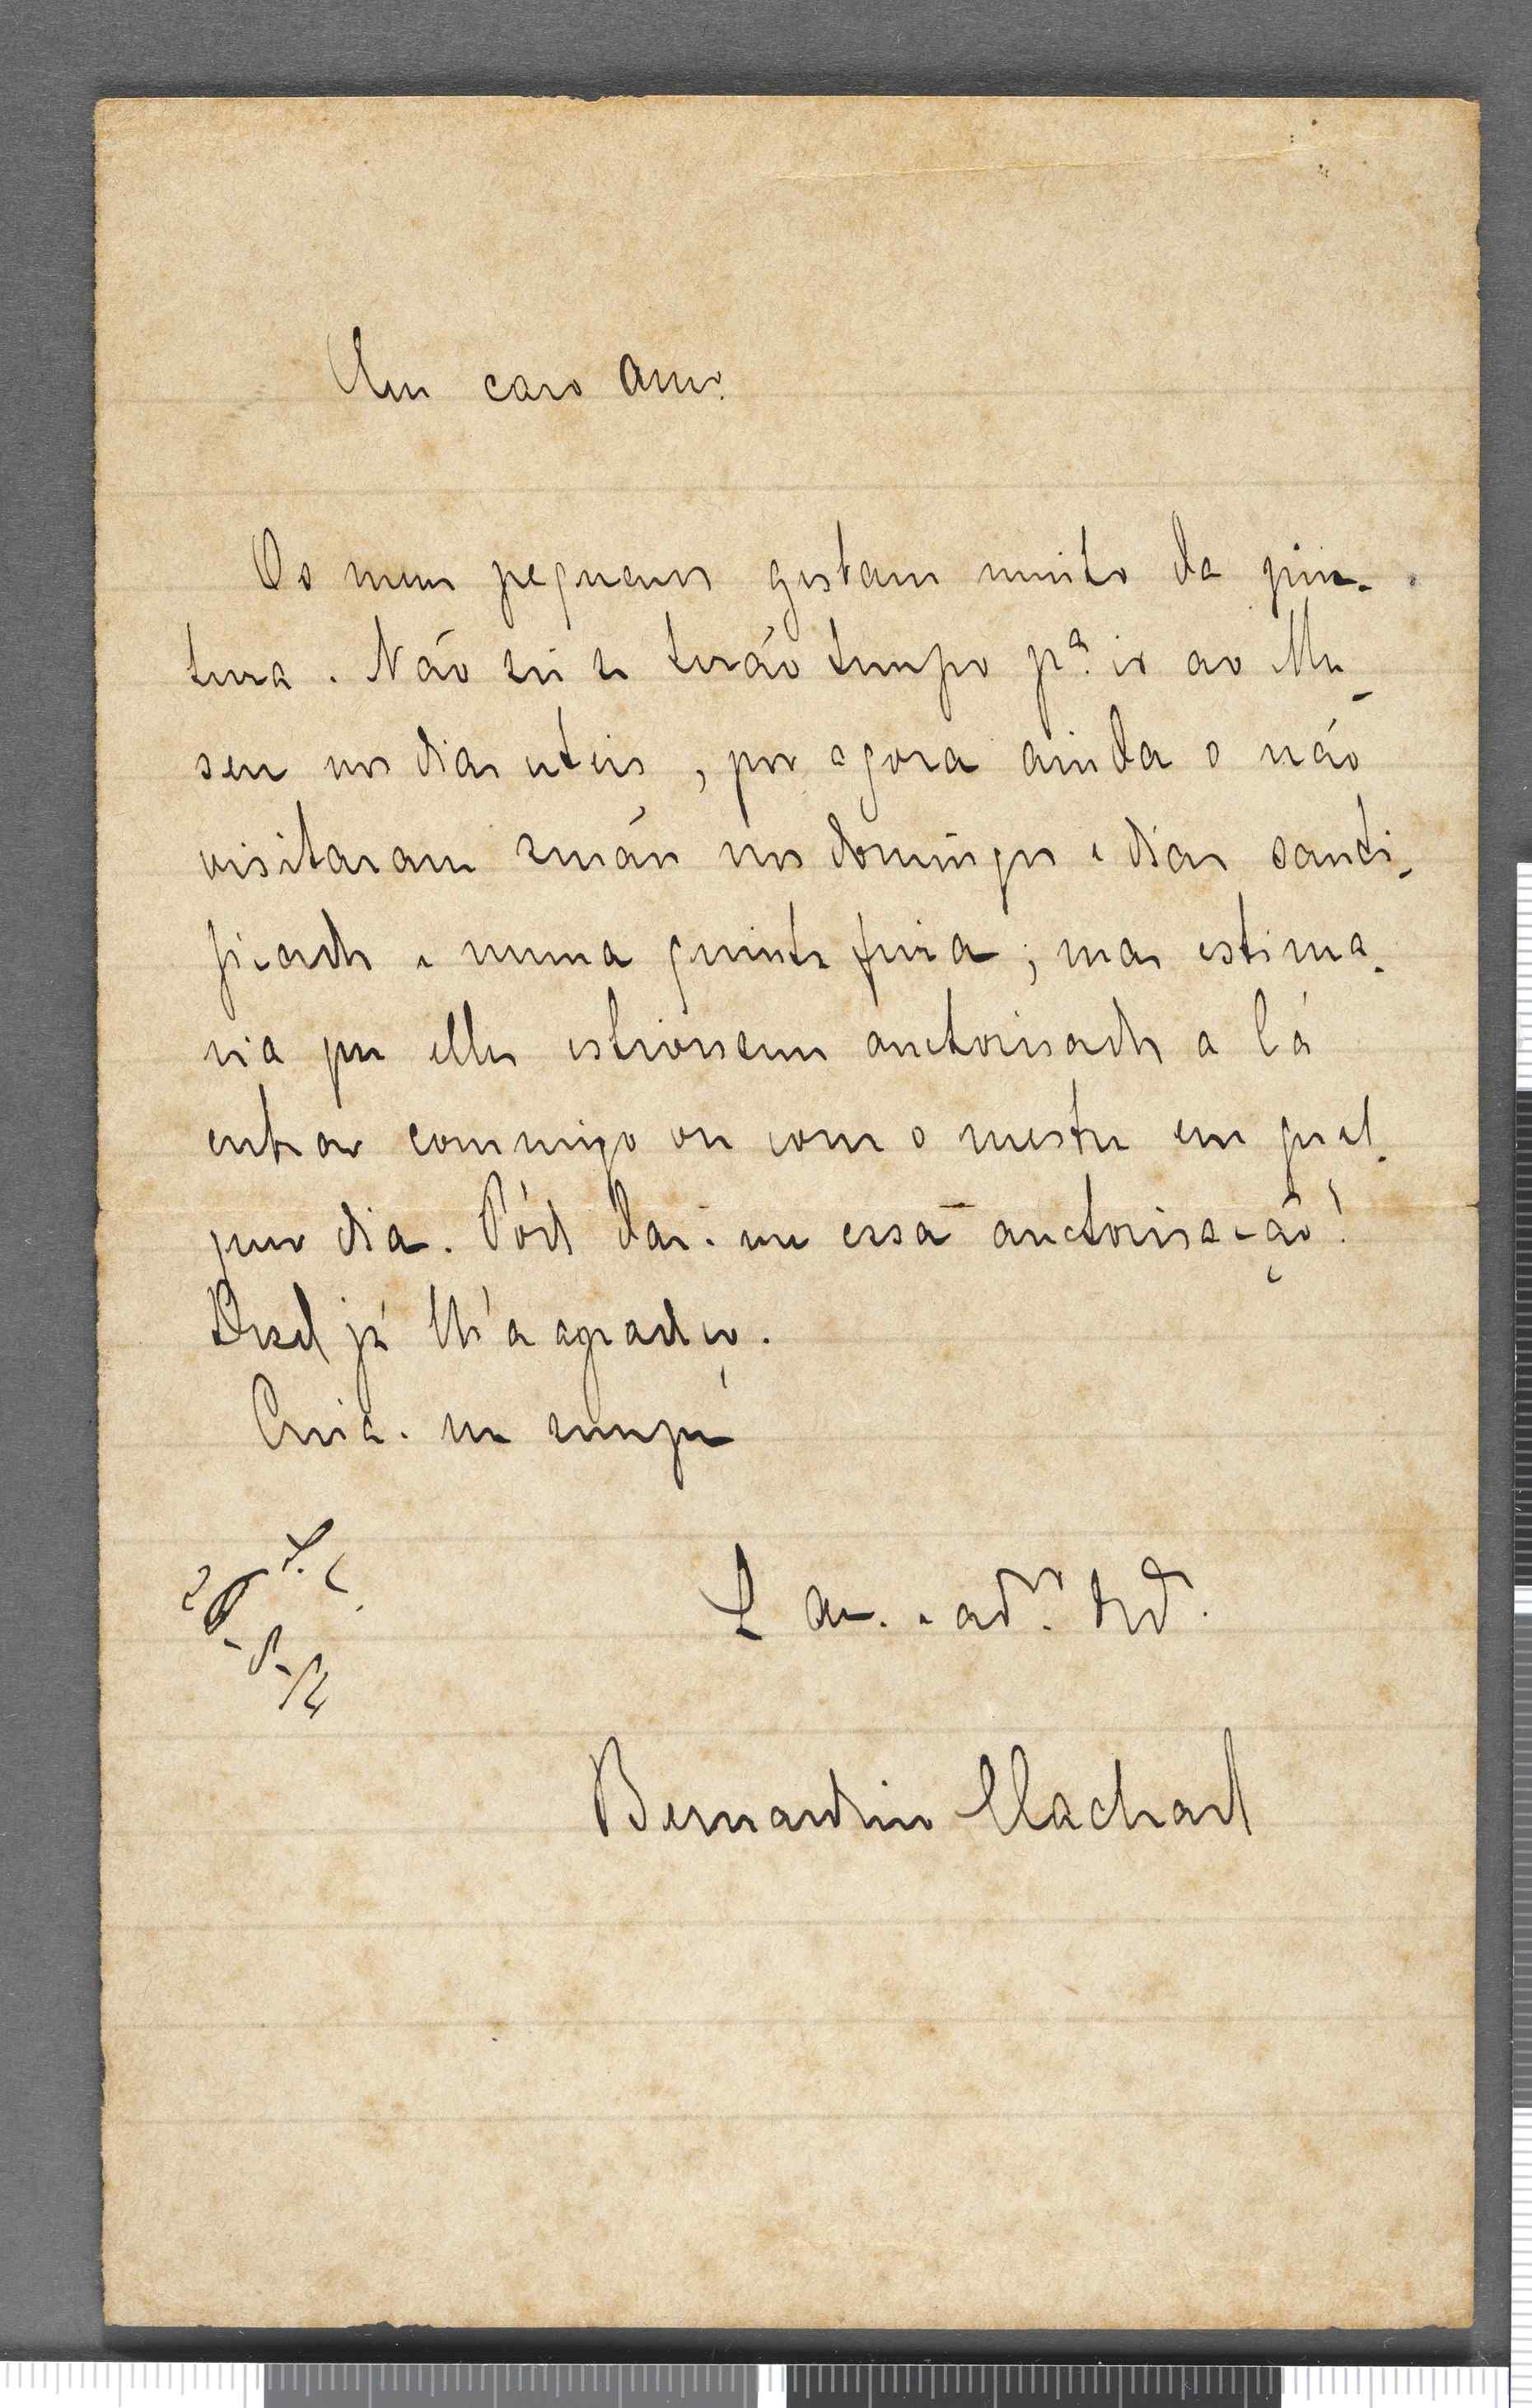 Meu caro Amº.
Os meus pequenos gostam muito da pin-
tura. Não sei se terão tempo pª. ir ao Mu-
seu nos dias uteis, por agora ainda o não
visitaram senão nos domingos e dias santi-
ficados e numa quinta feira; mas estima-
ria que elles estivessem auctorisados a lá
entrar commigo ou com o mestre em qual-
quer dia. Póde dar-me essa auctorisação?
Desde já lh'a agradeço.
Creia-me sempre
S. C.
Am. e adºr.
Bernardino Machado